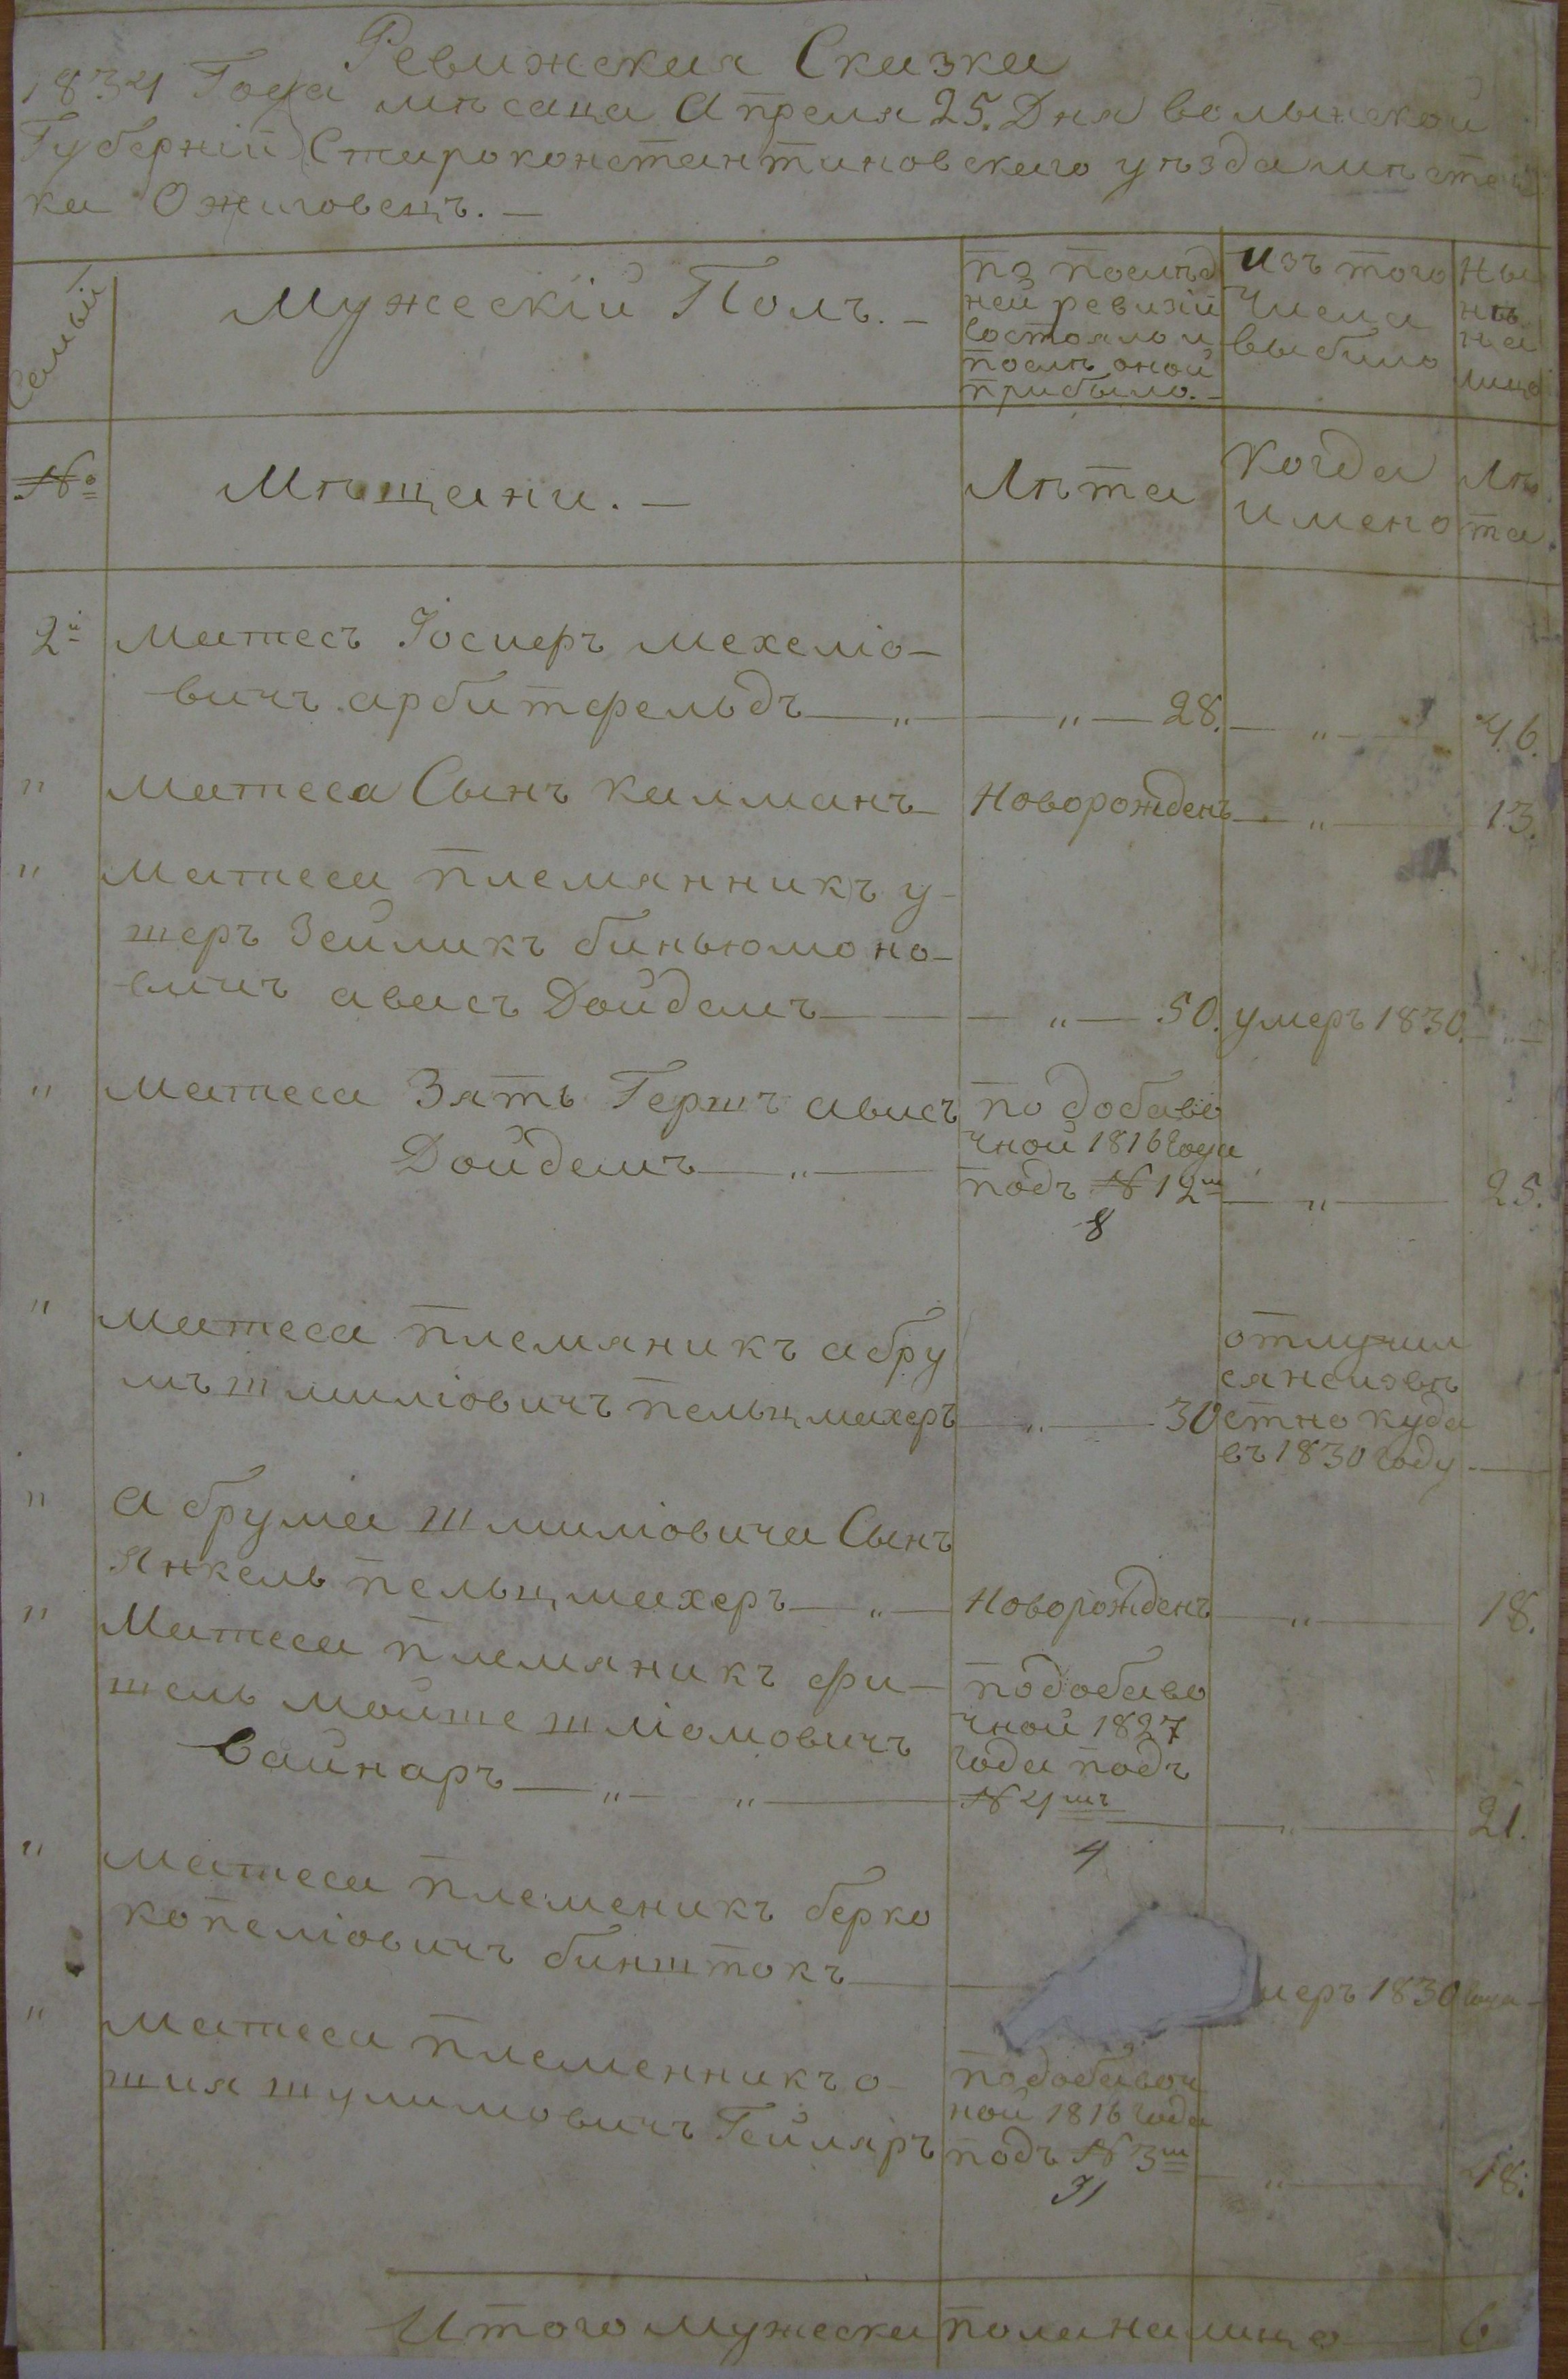 Ревижская Сказка
1834 Года мѣсаца Апреля 25. Дня Волынской
Губерніи Староконстантиновскаго уѣзда мѣстеч
ка Ожиговецъ. —
Семьи
Мужескій Полъ. —
по послѣд
ней ревизіи
состояло и
послѣ оной
прибыло. —
Изъ того
Числа
выбило
Ны
нѣ
на
лицо
№
Мѣщани. —
Лѣта
Когда
имено
Лѣ
та.
2й
матесъ Іосиеръ мехеліо-
вичъ арбитфельдъ — „ —
— „ — 28.
— „ —
46.
„
матеса Сынъ калманъ
Новорожденъ
— „ —
13.
„
матеса племянникъ у-
шеръ Зейликъ биньюмоно-
вичъ ависъ Дойдемъ —
— „ — 50.
умеръ 1830.
„
матеса Зять Гершъ ависъ
Дойдемъ — „ —
по добаво
чной 1816 Года
подъ № 12м
8
— „ —
25.
„
матеса племяникъ абру
мъ шмиліовичъ пельцмахеръ
— „ — 30
отлучил
ся неизвѣ
стно куда
въ 1830 году —
„
абрума шмиліовича Сынъ
Янкель пельцмахеръ — „ —
Новорожденъ
— „ —
18.
„
Матеса племяникъ фи-
шель мойше шліомовичъ
Вайнаръ — „ — „ —
по добаво
чной 1827
Года подъ
№ 4мъ
4
— „ —
21.
„
матеса племеникъ берко
копеліовичъ бинштокъ —
меръ 1830 года —
„
матеса племенникъ о-
шия шулимовичъ Гейляръ
по добавоч
ной 1816 года
подъ № 3м
31
— „ —
48.
Итого мужеска пола на лицо — 6